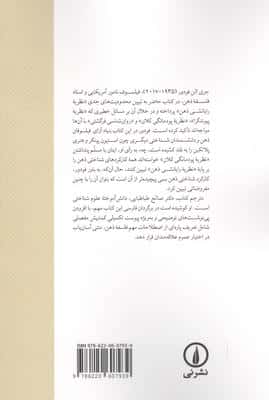 جری الن فودور (۱۹۳۵-۲۰۱۷)، فیلسوف نامور آمریکایی و استاد
فلسفهٔ ذهن، در کتاب حاضر به تبیین محدودیت‌های جدی «نظریهٔ
رایانشی ذهن» پرداخته و در خلال آن بر مسائل خطیری که «نظریهٔ
پیمانه‌ای کلان» و «روان‌شناسی فرگشتی» با آن‌ها
مواجه‌اند تأکید کرده است. فودور در این کتاب بنیاد آرای فیلسوفان
و دانشمندان شناختی دیگری چون استیون پینکر و هنری
پلاتکین را به نقد کشیده است، چه، به رأی او، اینان با مسلّم پنداشتن
«نظریهٔ پیمانگی کلان» خواسته‌اند همهٔ کارکردهای شناختی ذهن را
بر پایهٔ «نظریهٔ رایانشی ذهن» تبیین کنند. حال آن‌که، به نظر فودور،
کارکرد شناختی ذهن بسی پیچیده‌تر از آن است که بتوان آن را با چنین
مفروضاتی تبیین کرد.
مترجم کتاب، دکتر صالح طباطبایی، دانش‌آموختهٔ علوم شناختی
است. او کوشیده است در برگردان فارسی این کتاب مهم، با افزودن
پی‌نوشت‌های توضیحی و به‌ویژه پیوست تکمیلی کمابیش مفصلی
شامل تعریف پاره‌ای از اصطلاحات مهم فلسفهٔ ذهن، متنی آسان‌یاب
در اختیار عموم علاقه‌مندان قرار دهد.
ISBN: 978-622-06-0793-9
9 786220 607939
نشر نی